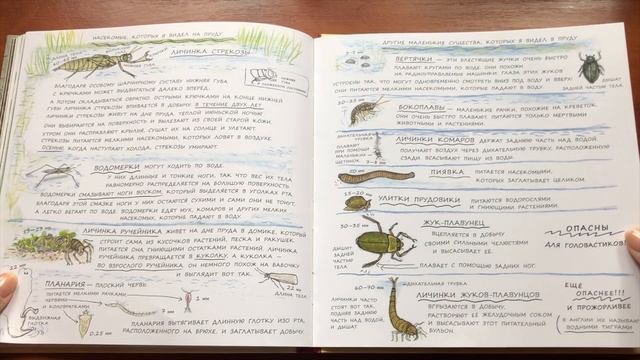 НАСЕКОМЫЕ, КОТОРЫХ Я ВИДЕЛ НА ПРУДУ
ЛИЧИНКА СТРЕКОЗЫ
БЛАГОДАРЯ ОСОБОМУ ШАРНИРНОМУ СУСТАВУ НИЖНЯЯ ГУБА
С КРЮЧКАМИ МОЖЕТ ВЫДВИГАТЬСЯ ДАЛЕКО ВПЕРЁД,
А ПОТОМ СКЛАДЫВАТЬСЯ ОБРАТНО. ОСТРЫМИ КРЮЧКАМИ НА КОНЦЕ НИЖНЕЙ
ГУБЫ ЛИЧИНКА СТРЕКОЗЫ ВПИВАЕТСЯ В ДОБЫЧУ. В ТЕЧЕНИЕ ДВУХ ЛЕТ
ЛИЧИНКИ СТРЕКОЗЫ ЖИВУТ НА ДНЕ ПРУДА. ТЁПЛОЙ ИЮНЬСКОЙ НОЧЬЮ
ОНИ ВЫБИРАЮТСЯ НА ПОВЕРХНОСТЬ И ВЫЛЕЗАЮТ ИЗ СВОЕЙ СТАРОЙ КОЖИ.
УТРОМ ОНИ РАСПРАВЛЯЮТ КРЫЛЬЯ, СУШАТ ИХ НА СОЛНЦЕ И УЛЕТАЮТ.
СТРЕКОЗЫ ПИТАЮТСЯ МЕЛКИМИ НАСЕКОМЫМИ, КОТОРЫХ ЛОВЯТ В ВОЗДУХЕ.
ОСЕНЬЮ, КОГДА НАСТУПАЮТ ХОЛОДА, СТРЕКОЗЫ УМИРАЮТ.
ВОДОМЕРКИ МОГУТ ХОДИТЬ ПО ВОДЕ.
У НИХ ДЛИННЫЕ И ТОНКИЕ НОГИ, ТАК ЧТО ВЕС ИХ ТЕЛА
РАВНОМЕРНО РАСПРЕДЕЛЯЕТСЯ НА БОЛЬШУЮ ПОВЕРХНОСТЬ.
ВОДОМЕРКИ СМАЗЫВАЮТ НОГИ ВОСКОМ, КОТОРЫЙ ВЫДЕЛЯЕТСЯ В УГОЛКАХ РТА.
БЛАГОДАРЯ ЭТОЙ СМАЗКЕ НОГИ У НИХ ОСТАЮТСЯ СУХИМИ И САМИ ОНИ НЕ ТОНУТ,
А ЛЕГКО БЕГАЮТ ПО ВОДЕ. ВОДОМЕРКИ ЕДЯТ МУХ, КОМАРОВ И ДРУГИХ МЕЛКИХ
НАСЕКОМЫХ, КОТОРЫЕ ПАДАЮТ В ВОДУ.
ЛИЧИНКА РУЧЕЙНИКА ЖИВЁТ НА ДНЕ ПРУДА В ДОМИКЕ, КОТОРЫЙ
СТРОИТ САМА ИЗ КУСОЧКОВ РАСТЕНИЙ, ПЕСКА И РАКУШЕК.
ПИТАЕТСЯ ОНА ГНИЮЩИМИ ОСТАТКАМИ РАСТЕНИЙ. ЛИЧИНКА
РУЧЕЙНИКА ПРЕВРАЩАЕТСЯ В КУКОЛКУ, А КУКОЛКА –
ВО ВЗРОСЛОГО РУЧЕЙНИКА, ОН НЕМНОГО ПОХОЖ НА БАБОЧКУ
И ВЫГЛЯДИТ ВОТ ТАК.
22 мм
ДЛИНА ТЕЛА
ПЛАНАРИЯ – ПЛОСКИЙ ЧЕРВЬ
ПИТАЕТСЯ МЕЛКИМИ РАЧКАМИ,
ЧЕРВЯМИ
И КОЛОВРАТКАМИ
ВЫДВИЖНАЯ
ГЛОТКА
0,25 мм
7 мм
1 мм
ПЛАНАРИЯ ВЫТЯГИВАЕТ ДЛИННУЮ ГЛОТКУ ИЗ РТА,
РАСПОЛОЖЕННОГО НА БРЮХЕ, И ЗАГЛАТЫВАЕТ ДОБЫЧУ.
ДРУГИЕ МАЛЕНЬКИЕ СУЩЕСТВА, КОТОРЫХ Я ВИДЕЛ В ПРУДУ
ВЕРТЯЧКИ – ЭТИ БЛЕСТЯЩИЕ ЖУЧКИ ОЧЕНЬ БЫСТРО
ПЛАВАЮТ КРУГАМИ ПО ВОДЕ. ОНИ ПОХОЖИ
НА РАДИОУПРАВЛЯЕМЫЕ МАШИНКИ. ГЛАЗА ЭТИХ ЖУКОВ
УСТРОЕНЫ ТАК, ЧТО МОГУТ ОДНОВРЕМЕННО СМОТРЕТЬ ВНИЗ ПОД ВОДУ И ВВЕРХ!
ОНИ ПИТАЮТСЯ МЕЛКИМИ НАСЕКОМЫМИ, КОТОРЫЕ ПАДАЮТ В ВОДУ.
ДЫШАТ
ЗАДНЕЙ ЧАСТЬЮ ТЕЛА
БОКОПЛАВЫ – МАЛЕНЬКИЕ РАЧКИ, ПОХОЖИЕ НА КРЕВЕТОК.
ОНИ ОЧЕНЬ БЫСТРО ПЛАВАЮТ. ПИТАЮТСЯ ТОЛЬКО МЁРТВЫМИ
ЖИВОТНЫМИ И РАСТЕНИЯМИ.
ДЫХАТЕЛЬНАЯ
ТРУБКА
ПЛАВАЕТ
ПРИ ПОМОЩИ
ЩЕТИНОК
ЛИЧИНКИ КОМАРОВ ДЕРЖАТ ЗАДНЮЮ ЧАСТЬ НАД ВОДОЙ,
ПОЛУЧАЮТ ВОЗДУХ ЧЕРЕЗ ДЫХАТЕЛЬНУЮ ТРУБКУ, РАСПОЛОЖЕННУЮ
СЗАДИ. ВСАСЫВАЮТ ПИЩУ ИЗ ВОДЫ.
ПИЯВКА ПИТАЕТСЯ НАСЕКОМЫМИ,
КОТОРЫХ ЗАГЛАТЫВАЕТ ЦЕЛИКОМ.
15–20 мм
УЛИТКИ ПРУДОВИКИ ПИТАЮТСЯ ВОДОРОСЛЯМИ
И ГНИЮЩИМИ РАСТЕНИЯМИ.
30–35 мм
ЖУК-ПЛАВУНЕЦ
ВЦЕПЛЯЕТСЯ В ДОБЫЧУ
СВОИМИ СИЛЬНЫМИ ЧЕЛЮСТЯМИ
И ВЫСАСЫВАЕТ ЕЁ.
ОПАСНЫ
ДЛЯ ГОЛОВАСТИКОВ!
ДЫШИТ
ЗАДНЕЙ
ЧАСТЬЮ
ТЕЛА
ПЛАВАЕТ С ПОМОЩЬЮ ЗАДНИХ НОГ.
60–70 мм
ДЫХАТЕЛЬНАЯ ТРУБКА
ЛИЧИНКИ ЖУКОВ-ПЛАВУНЦОВ
ВПИВАЮТСЯ В ДОБЫЧУ,
РАСТВОРЯЮТ ЕЁ ЖЕЛУДОЧНЫМ СОКОМ
И ВЫСАСЫВАЮТ ЭТОТ ПИТАТЕЛЬНЫЙ
БУЛЬОН.
ЛИЧИНКИ ЧАСТО
СТОЯТ ВОТ ТАК,
ПОДНЯВ ЗАДНЮЮ
ЧАСТЬ НАД ВОДОЙ,
И ДЫШАТ.
ЕЩЁ
ОПАСНЕЕ!!!
И ПРОЖОРЛИВЕЕ
В АНГЛИИ ИХ НАЗЫВАЮТ
ВОДНЫМИ ТИГРАМИ